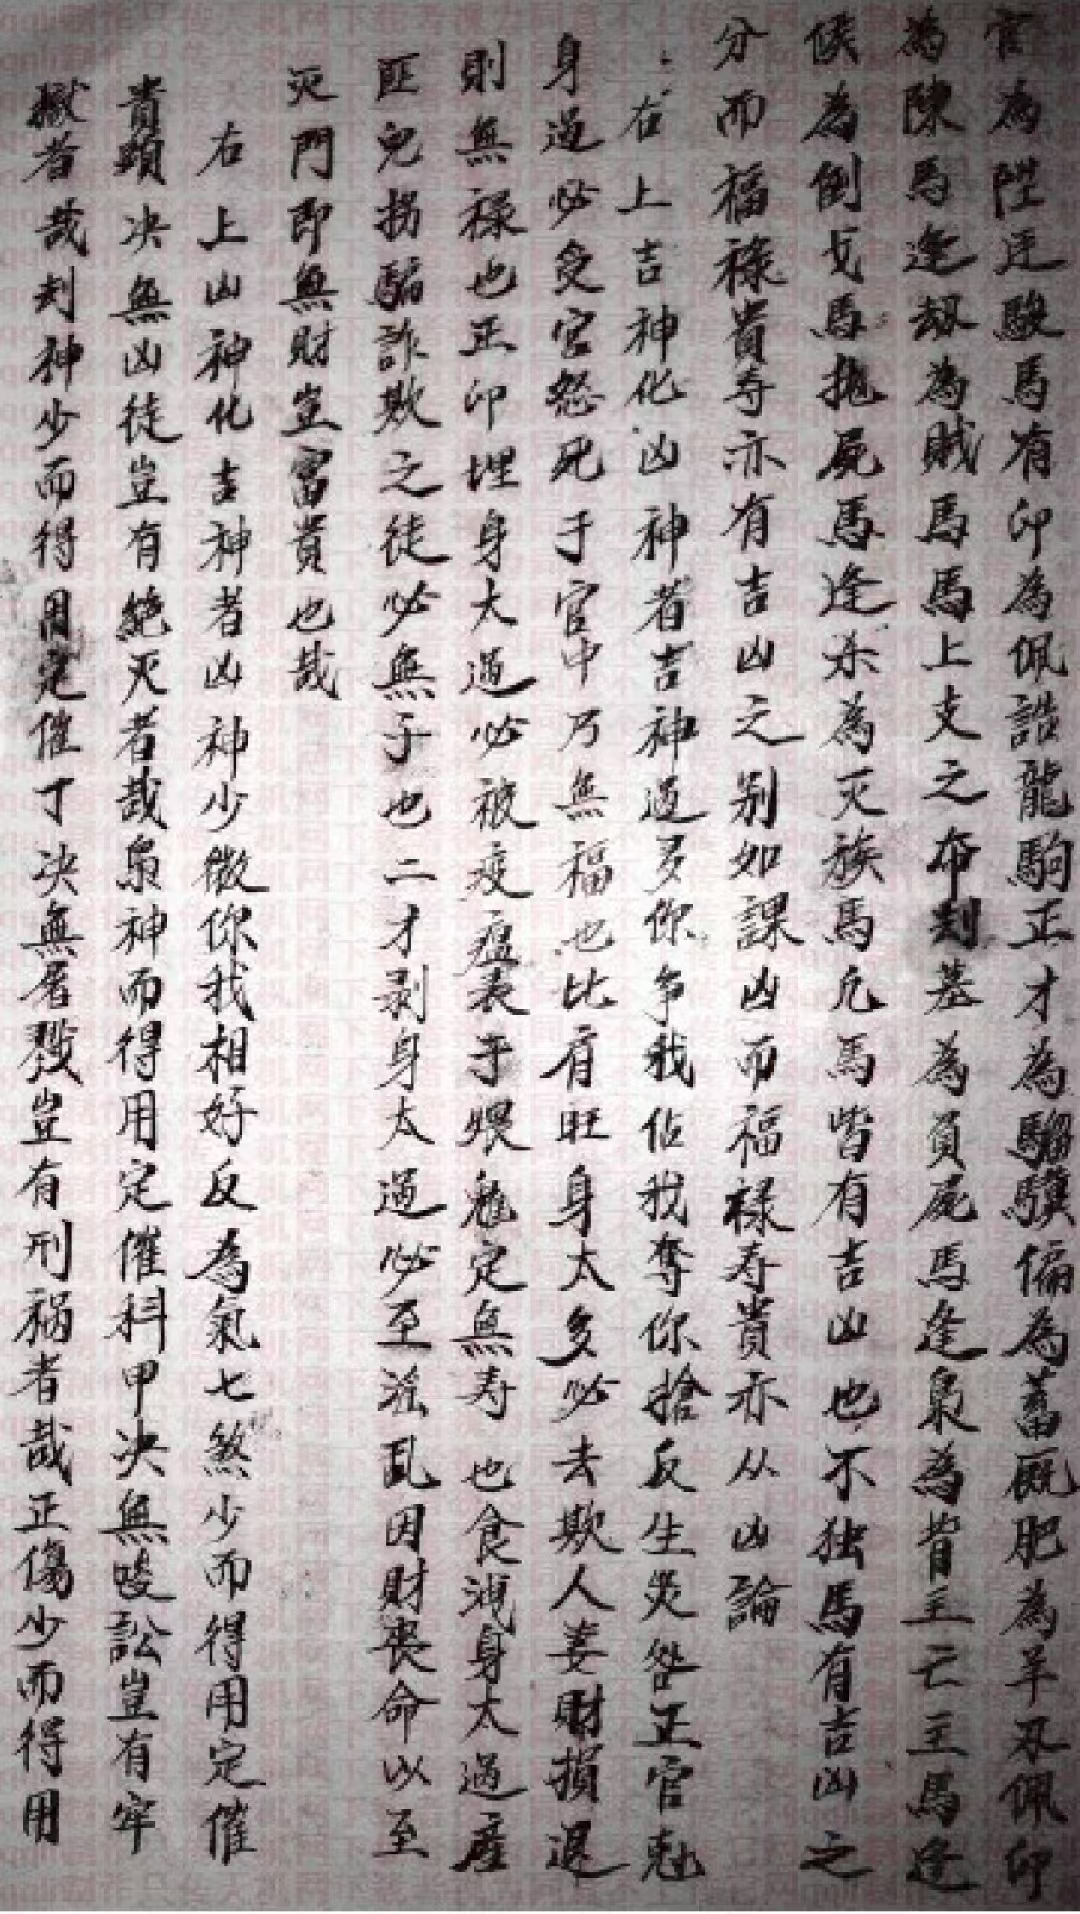 官為陞迁駿馬有印為佩誥龍駒正才為騮驥偏為蓄厩肥為羊刃佩印
為陳馬逢劫為賊馬馬上支之布刦基為負屍馬逢梟為背主亡主馬逢
候為倒戈馬拋屍馬逢杀為灭族馬凡馬皆有吉凶也不独馬有吉凶之
分而福祿貴寿亦有吉凶之别如課凶而福祿寿貴亦从凶論
右上吉神化凶神者吉神过多你争我佔我奪你搶反生災咎正官尅
身过必受官怒死于官中乃無福也比肩旺身太多必去欺人妻財損退
則無祿也正印埋身大过必被疫瘟表寺煨魁定無寿也食洩身太过產
匪兒拐騙詐欺之徒必無子也二才剥身太过必至淫乱因財喪命以至
灭門即無財豈富貴也哉
右上凶神化吉神者凶神少微你我相好反為氣七煞少而得用定催
貴顕决無凶徒豈有絶灭者哉梟神而得用定催科甲决無唆訟豈有牢
獄者哉刦神少而得用定催丁决無孱戮豈有刑祸者哉正傷少而得用